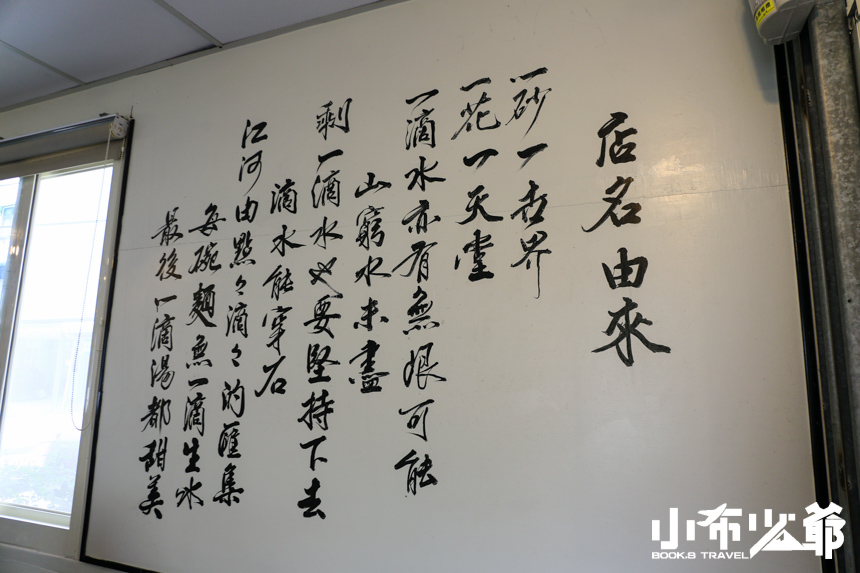 店名由來
一砂一世界
一花一天堂
一滴水亦有無垠可能
山窮水未盡
剩一滴水也要堅持下去
滴水能穿石
江河由點々滴々的匯集
每碗麵無一滴生水
最後一滴湯都甜美
小布少爺
BOOK.B TRAVEL